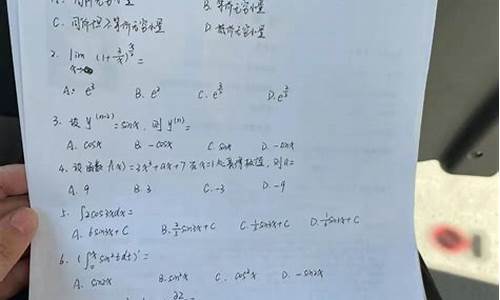 A. 同阶无穷小量 B. 等价无穷小量
C. 同阶但不等价无穷小量 D.
2. lim (1+2/x)^
x→∞
A. e³ B. e² C. D.
3. 设 y⁽ⁿ⁻²⁾=sinx, 则 y⁽ⁿ⁾=
A. cosx B. -cosx C. sinx D. -sinx
4. 设函数 f(x)=2x³+ax+7 在 x=1处取得极值, 则a=
A. 9 B. 3 C. -3 D. -9
5. ∫2cos3xdx=
A. 6sin3x+C B. 2/3sin3x+C C. 1/3sin3x+C D. 1/6sin3x+C
6. (∫₀ˣsin²tdt)'=
A. sin2x B. sin²x C. cos²x D. -sin2x